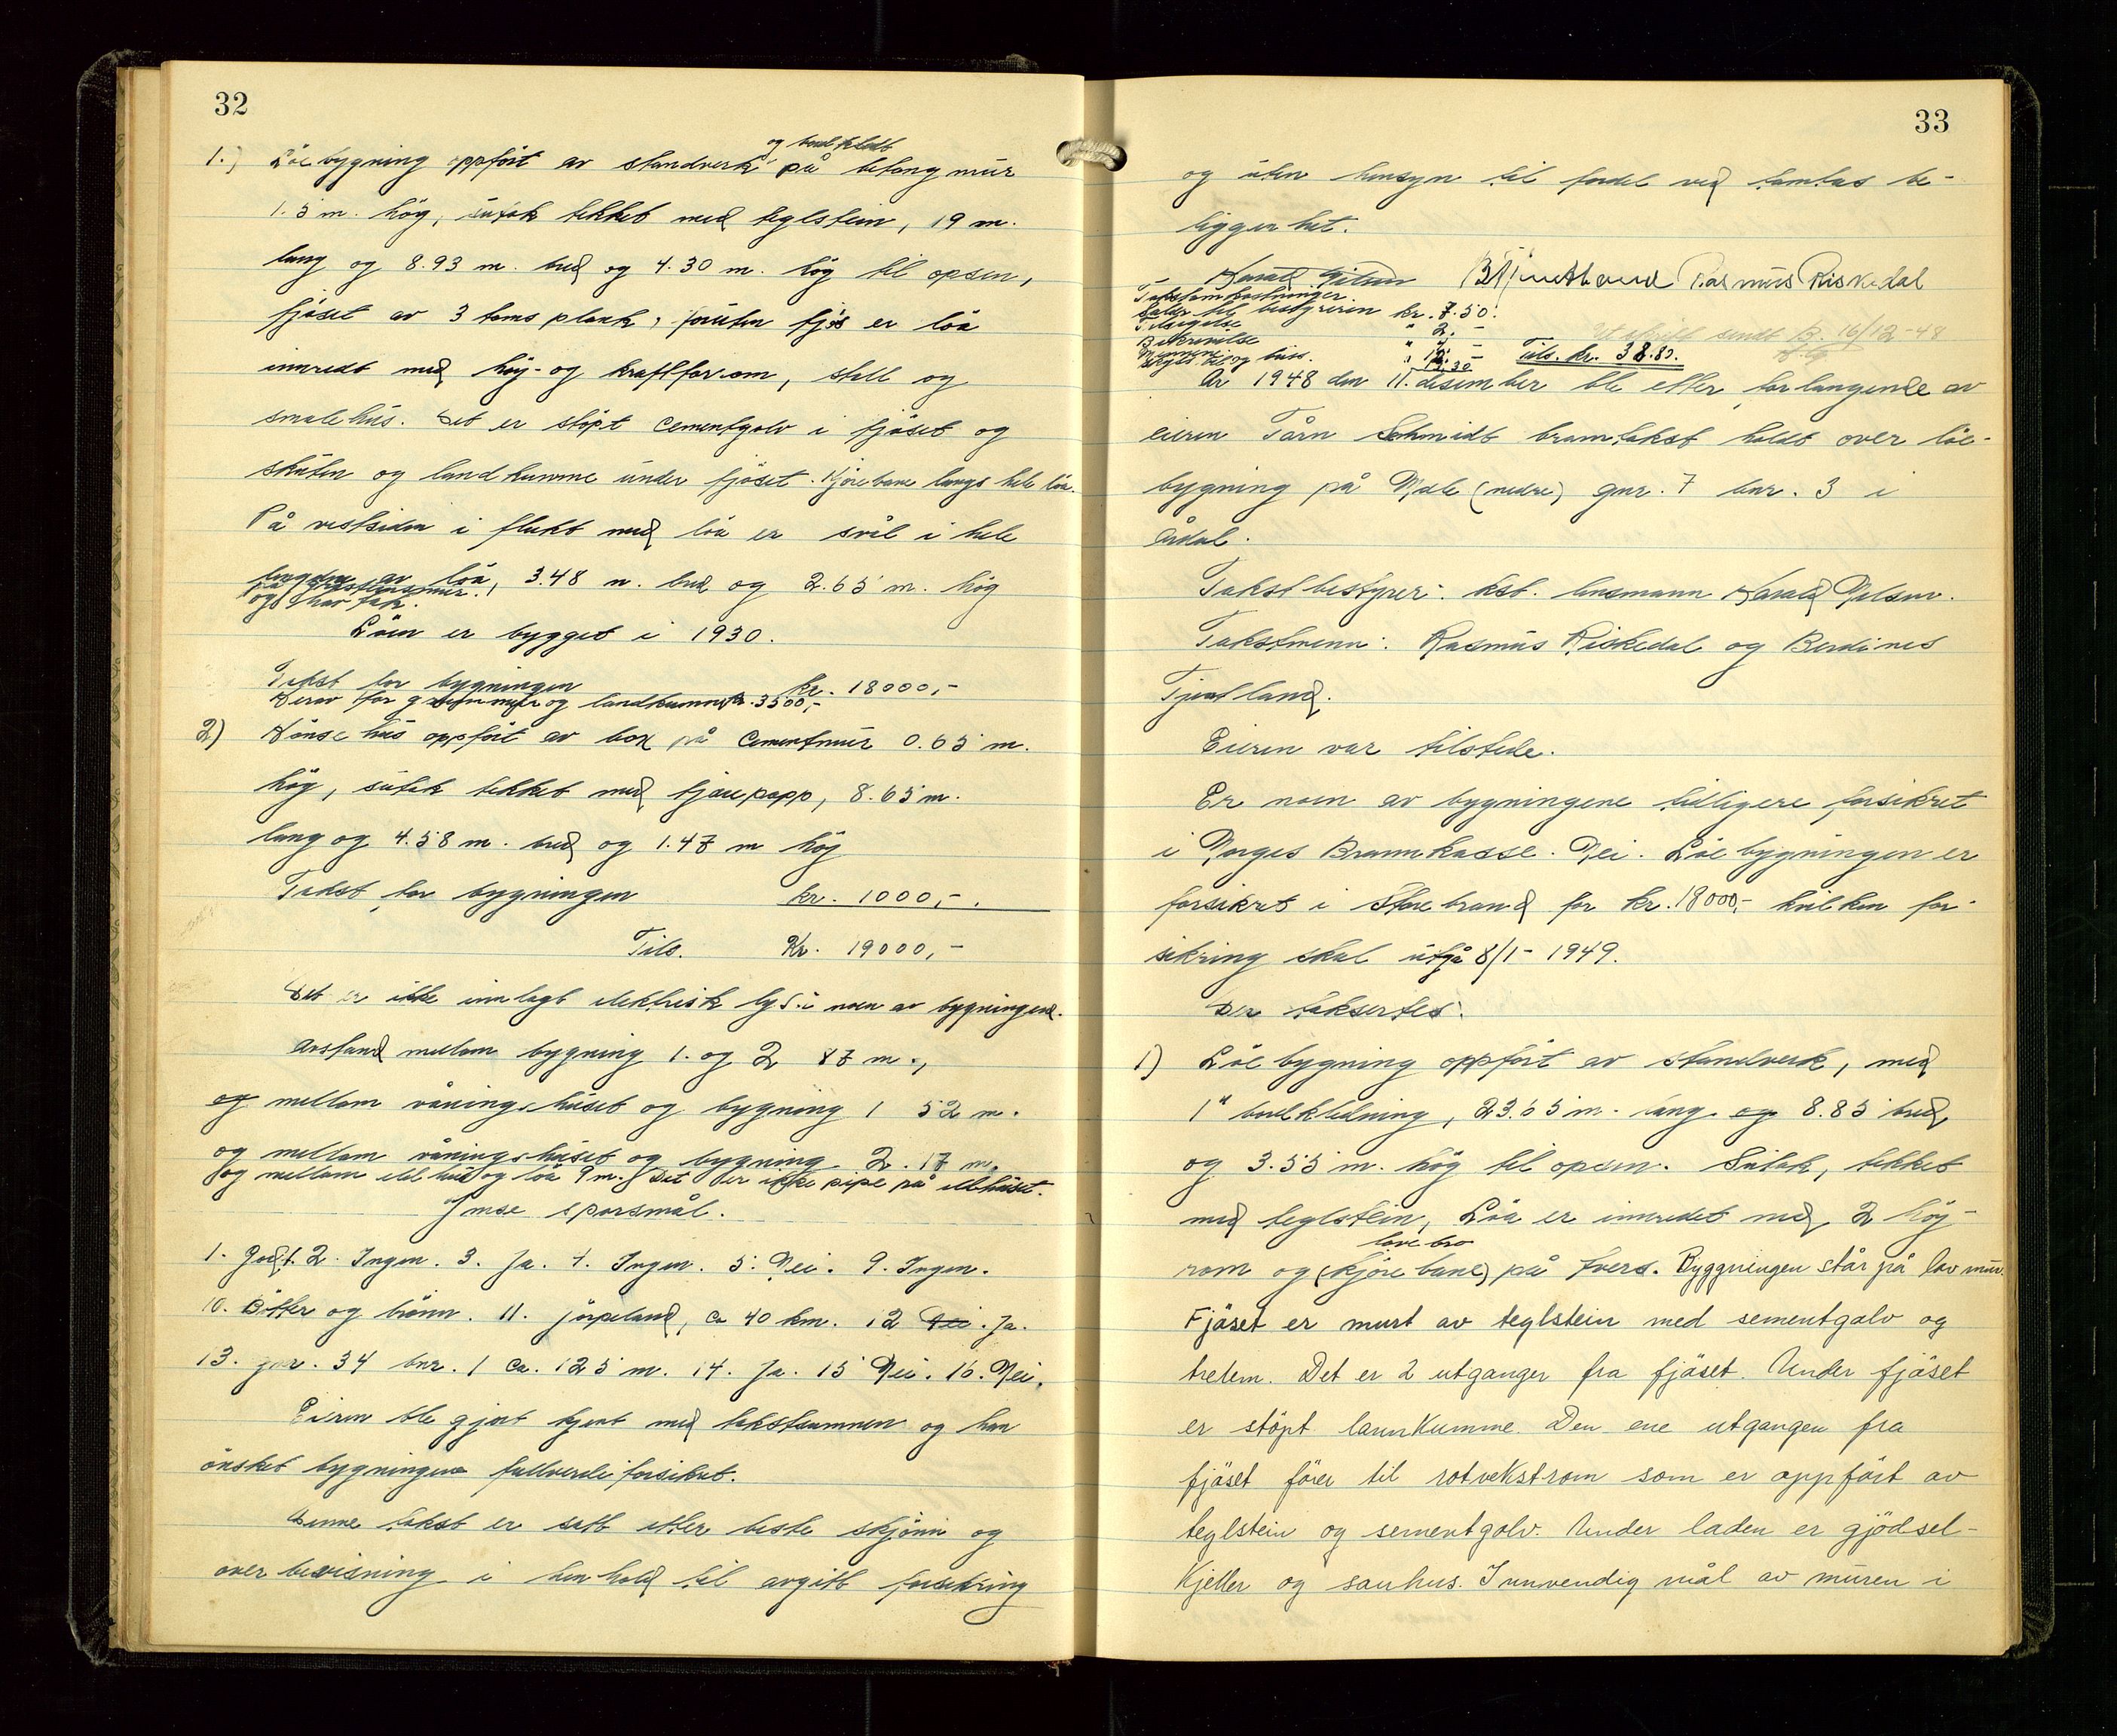 32
1.) Löebygning oppfört av standverk og bordkledt på betongmur
1.5 m. hög, sutak tekket med teglstein, 19 m.
lang og 8.93 m. bred og 4.30 m. hög til opsen,
fjöset av 3 toms plank, foruten fjös er löa
innredt med höy- og kraftforrom, stall og
smalehus. Det er stöpt cementgolv i fjöset og
skåten og landkumme under fjöset. Kjörebane langs hele löa.
På vestsiden i flukt med löa er svål i hele
lengden av löa, 3.48 m. bred og 2.65 m. hög
på gråsteinsmur.
og har tak.
Löen er bygget i 1930.
Takst for bygningen kr. 18000,-
Derav for grunnmur og landkumme kr. 3500,-
2) Hönsehus oppfört av bor på cementmur 0.65 m.
hög, sutak tekket med tjærepapp, 8.65 m.
lang og 4.58 m. bred og 1.47 m hög
Takst for bygningen kr. 1000,-.
Tils. Kr. 19000,-
Det er ikke innlagt elektrisk lys i noen av bygningene.
Avstand mellom bygning 1. og 2 87 m.,
og mellom våningshuset og bygning 1 52 m.
og mellom våningshuset og bygning 2. 17 m.
og mellom eldhus og löa 9 m. Det er ikke pipe på eldhuset.
Ymse spörsmål.
1. Godt. 2. Ingen. 3. Ja. 4. Ingen. 5. Nei. 9. Ingen.
10. Bötter og brönn. 11. Jörpeland, ca 40 km. 12 Nei. Ja.
13. gnr. 34 bnr. 1 ca. 125 m. 14. Ja. 15 Nei. 16. Nei.
Eieren ble gjort kjent med takstsummen og han
önsket bygningene fullverdiforsikret.
Denne takst er satt etter beste skjönn og
overbevisning i henhold til avgitt forsikring
33
og uten hensyn til fordel ved tomtas be-
liggenhet.
Harald Nilsen B Tjentland Rasmus Riskedal
Takstomkostninger
Salær til bestyreren kr. 7.50.
Tilsigelse " 2. -
Beskrivelse " 4. -
Mennene " 12. - Tils. kr. 38.80.
Utskrift sendt B. 16/12-48
År 1948 den 11. desember ble etter forlangende av
eieren Tårn Schmidt branntakst holdt over löe-
bygning på Mæle (nedre) gnr. 7 bnr. 3 i
Årdal.
Takstbestyrer: kst. lensmann Harald Nilsen.
Takstmenn: Rasmus Riskedal og Berdines
Tjentland.
Eieren var tilstede.
Er noen av bygningene tidligere forsikret
i Norges Brannkasse. Nei. Löebygningen er
forsikret i Storebrand for kr. 18000,- hvilken for-
sikring skal utgå 8/1-1949.
Der taksertes:
1) Löebygning oppfört av standverk, med
1" bordkledning, 23.65 m. lang og 8.85 bred
og 3.55 m. hög til opsen. Sutak, tekket
med teglstein, Löa er innredet med 2 höy-
rom og (kjörebane) låvebro på tvers. Byggningen står på lav mur.
Fjöset er murt av teglstein med sementgolv og
trelem. Det er 2 utganger fra fjöset. Under fjöset
er stöpt lannkumme. Den ene utgangen fra
fjöset förer til rotvekstrom som er oppfört av
teglstein og sementgolv. Under laden er gjödsel-
kjeller og sauhus. Innvendig mål av muren i